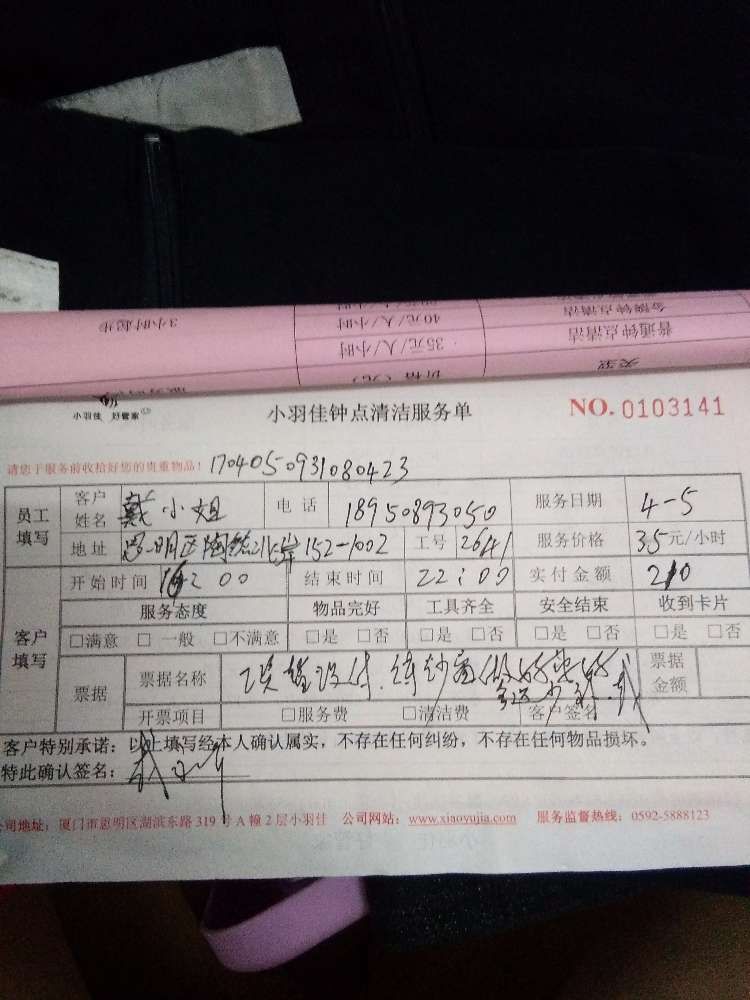 3小时起步
40元/人/小时
金牌钟点清洁
35元/人/小时
普通钟点清洁
价格（元）
类型
小羽佳 好管家
小羽佳钟点清洁服务单
NO. 0103141
请您于服务前收拾好您的贵重物品！ 1704050931080423
员工填写 客户姓名 戴小姐 电话 18950893050 服务日期 4-5
地址 思明区陶然北岸152-1002 工号 2641 服务价格 35元/小时
客户填写 开始时间 16:00 结束时间 22:00 实付金额 210
服务态度 物品完好 工具齐全 安全结束 收到卡片
□满意 □一般 □不满意 □是 □否 □是 □否 □是 □否 □是 □否
票据 票据名称 票据金额
开票项目 □服务费 □清洁费 客户签名
客户特别承诺：以上填写经本人确认属实，不存在任何纠纷，不存在任何物品损坏。
特此确认签名：
公司地址：厦门市思明区湖滨东路319号A幢2层小羽佳 公司网站：www.xiaoyujia.com 服务监督热线：0592-5888123